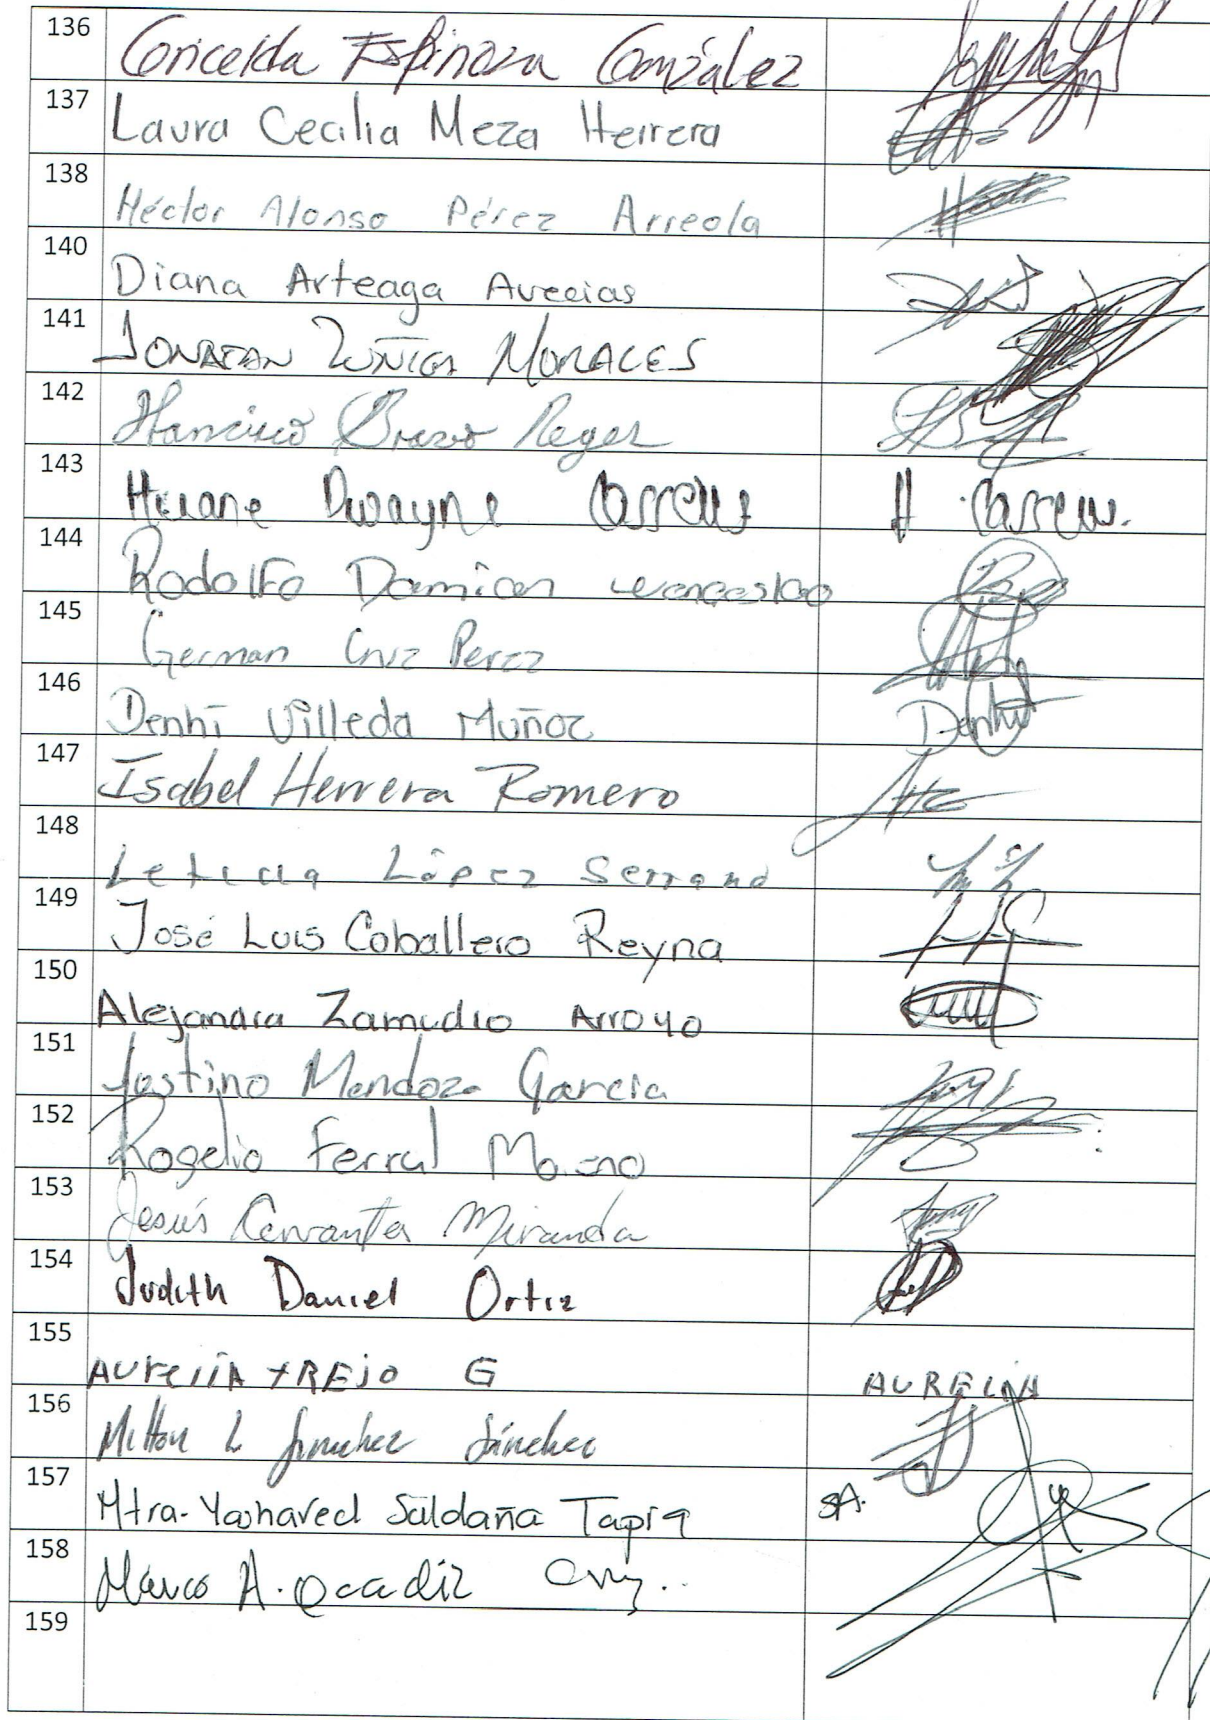 136 Espinoza González
137 Laura Cecilia Meza Herrera
138 Héctor Alonso Pérez Arreola
140 Diana Arteaga
141 Zuñiga MORALES
142 Francisco Bravo
143 Dwayne
144 Rodolfo Damian
145 German Cruz Perez
146 Denhi Villeda Muñoz Denhi
147 Isabel Herrera Romero
148 Leticia López Serrano
149 José Luis Caballero Reyna
150 Alejandra Zamudio Arroyo
151 Mendoza Garcia
152 Rogelio Ferral
153 Jesús Cervantes Miranda
154 Judith Daniel Ortiz
155 AURELIA TREJO G AURELIA
156 Milton L Sánchez Sánchez
157 Mtra. Saldaña Tapia SA.
158 Marco A. Ocadiz
159